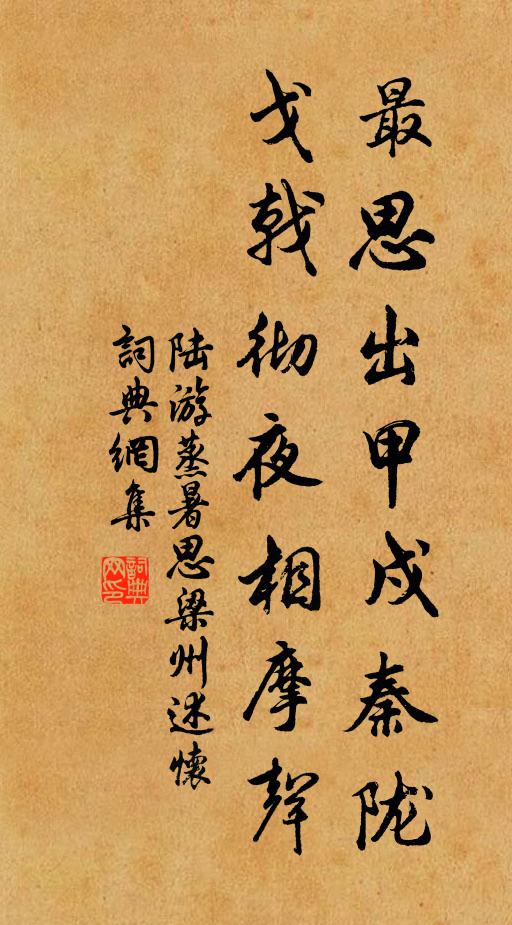 最思出甲戍秦陇
戈戟彻夜相摩声
陆游蒸暑思梁州述懷
詞典網集
詞典网印